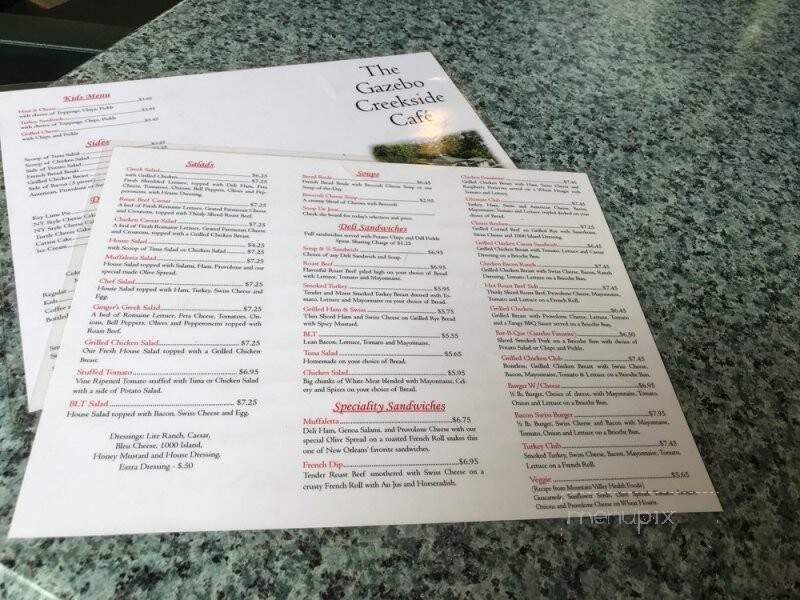 The
Gazebo
Creekside
Café
Kids Menu
Ham & Cheese
with choice of Toppings, Chips, Pickle
Turkey Sandwich
with choice of Toppings, Chips, Pickle
Grilled Cheese
with Chips and Pickle
Sides
Scoop of Tuna Salad
Scoop of Chicken Salad
Side of Potato Salad
French Bread Bowls
Grilled Chicken Breast
Key Lime Pie
NY Style Cheese
Turtle Cheese Cake
Carrot Cake
Ice Cream
Regular
Kids
Coffee
Bottled
Salads
Greek Salad
with Grilled Chicken $6.25
Fresh Shredded Lettuce, topped with Deli Ham, Feta $7.25
Cheese, Tomatoes, Onions, Bell Peppers, Olives and Pep-
peroncini with House Dressing.
Roast Beef Caesar $7.25
A bed of Fresh Romaine Lettuce, Grated Parmesan Cheese
and Croutons, topped with Thinly Sliced Roast Beef.
Chicken Caesar Salad $7.25
A bed of Fresh Romaine Lettuce, Grated Parmesan Cheese
and Croutons, topped with a Grilled Chicken Breast.
House Salad $4.25
with Scoop of Tuna Salad or Chicken Salad $7.25
Muffaletta Salad $7.25
House Salad topped with Salami, Ham, Provolone and our
special made Olive Spread.
Chef Salad $7.25
House Salad topped with Ham, Turkey, Swiss Cheese and
Egg.
Ginger's Greek Salad $7.25
A bed of Romaine Lettuce, Feta Cheese, Tomatoes, On-
ions, Bell Peppers, Olives and Pepperoncini topped with
Roast Beef.
Grilled Chicken Salad $7.25
Our Fresh House Salad topped with a Grilled Chicken
Breast.
Stuffed Tomato $6.95
Vine Ripened Tomato stuffed with Tuna or Chicken Salad
with a side of Potato Salad.
BLT Salad $7.25
House Salad topped with Bacon, Swiss Cheese and Egg.
Dressings: Lite Ranch, Caesar,
Bleu Cheese, 1000 Island,
Honey Mustard and House Dressing.
Extra Dressing - $.50
Soups
Bread Bowls $6.45
French Bread Bowls with Broccoli Cheese Soup or our
Soup-of-the-Day
Broccoli Cheese Soup $2.95
A creamy blend of Cheeses with Broccoli
Soup Du Jour
Check the board for today's selection and price.
Deli Sandwiches
Full sandwiches served with Potato Chips and Dill Pickle
Spear. Sharing Charge of $1.25
Soup & ½ Sandwich $6.95
Choice of any Deli Sandwich and Soup.
Roast Beef $6.95
Flavorful Roast Beef piled high on your choice of Bread
with Lettuce, Tomato and Mayonnaise.
Smoked Turkey $5.95
Tender and Moist Smoked Turkey Breast dressed with To-
mato, Lettuce and Mayonnaise on your choice of Bread.
Grilled Ham & Swiss $5.75
Thin Sliced Ham and Swiss Cheese on Grilled Rye Bread
with Spicy Mustard.
BLT $5.55
Lean Bacon, Lettuce, Tomato and Mayonnaise.
Tuna Salad $5.65
Homemade on your choice of Bread.
Chicken Salad $5.95
Big chunks of White Meat blended with Mayonnaise, Cel-
ery and Spices on your choice of Bread.
Speciality Sandwiches
Muffaletta $6.75
Deli Ham, Genoa Salami, and Provolone Cheese with our
special Olive Spread on a toasted French Roll makes this
one of New Orleans' favorite sandwiches.
French Dip $6.95
Tender Roast Beef smothered with Swiss Cheese on a
crusty French Roll with Au Jus and Horseradish.
$7.45
Grilled Chicken Breast, with Ham, Swiss Cheese and
Raspberry Preserves served on a Wheat Hoagie with
Tomato and Lettuce.
Ultimate Club $7.45
Turkey, Ham, Swiss and American Cheese, Bacon,
Mayonnaise, Tomato and Lettuce, tripled decked on your
choice of Bread.
Classic Reuben $7.25
Grilled Corned Beef on Grilled Rye with Sauerkraut,
Swiss Cheese and 1000 Island Dressing.
Grilled Chicken Caesar Sandwich $6.45
Grilled Chicken Breast with Tomato, Lettuce and Caesar
Dressing on a Brioche Bun.
Chicken Bacon Ranch $7.45
Grilled Chicken Breast with Swiss Cheese, Bacon, Ranch
Dressing, Tomato, Lettuce on a Brioche Bun.
Hot Roast Beef Sub $7.45
Thinly Sliced Roast Beef, Provolone Cheese, Mayonnaise,
Tomato and Lettuce on a French Roll.
Grilled Chicken $6.45
Grilled Breast with Provolone Cheese, Lettuce, Tomato
and a Tangy BBQ Sauce served on a Brioche Bun.
Bar-B-Que (Gazebo Favorite) $6.50
Sliced Smoked Pork on a Brioche Bun with choice of
Potato Salad or Chips and Pickle.
Grilled Chicken Club $7.45
Boneless, Grilled Chicken Breast with Swiss Cheese,
Bacon, Mayonnaise, Tomato & Lettuce on a Brioche Bun.
Burger W/Cheese $6.95
½ lb. Burger, Choice of cheese, with Mayonnaise, Tomato,
Onion and Lettuce on a Brioche Bun.
Bacon Swiss Burger $7.95
½ lb. Burger, Swiss Cheese and Bacon with Mayonnaise,
Tomato, Onion and Lettuce on a Brioche Bun.
Turkey Club $7.45
Smoked Turkey, Swiss Cheese, Bacon, Mayonnaise, Tomato,
Lettuce on a French Roll.
Veggie $5.65
(Recipe from Mountain Valley Health Foods)
Guacamole, Sunflower Seeds, Olive Spread, Tomato, Lettuce,
Onions and Provolone Cheese on Wheat Hoagie.
menupix